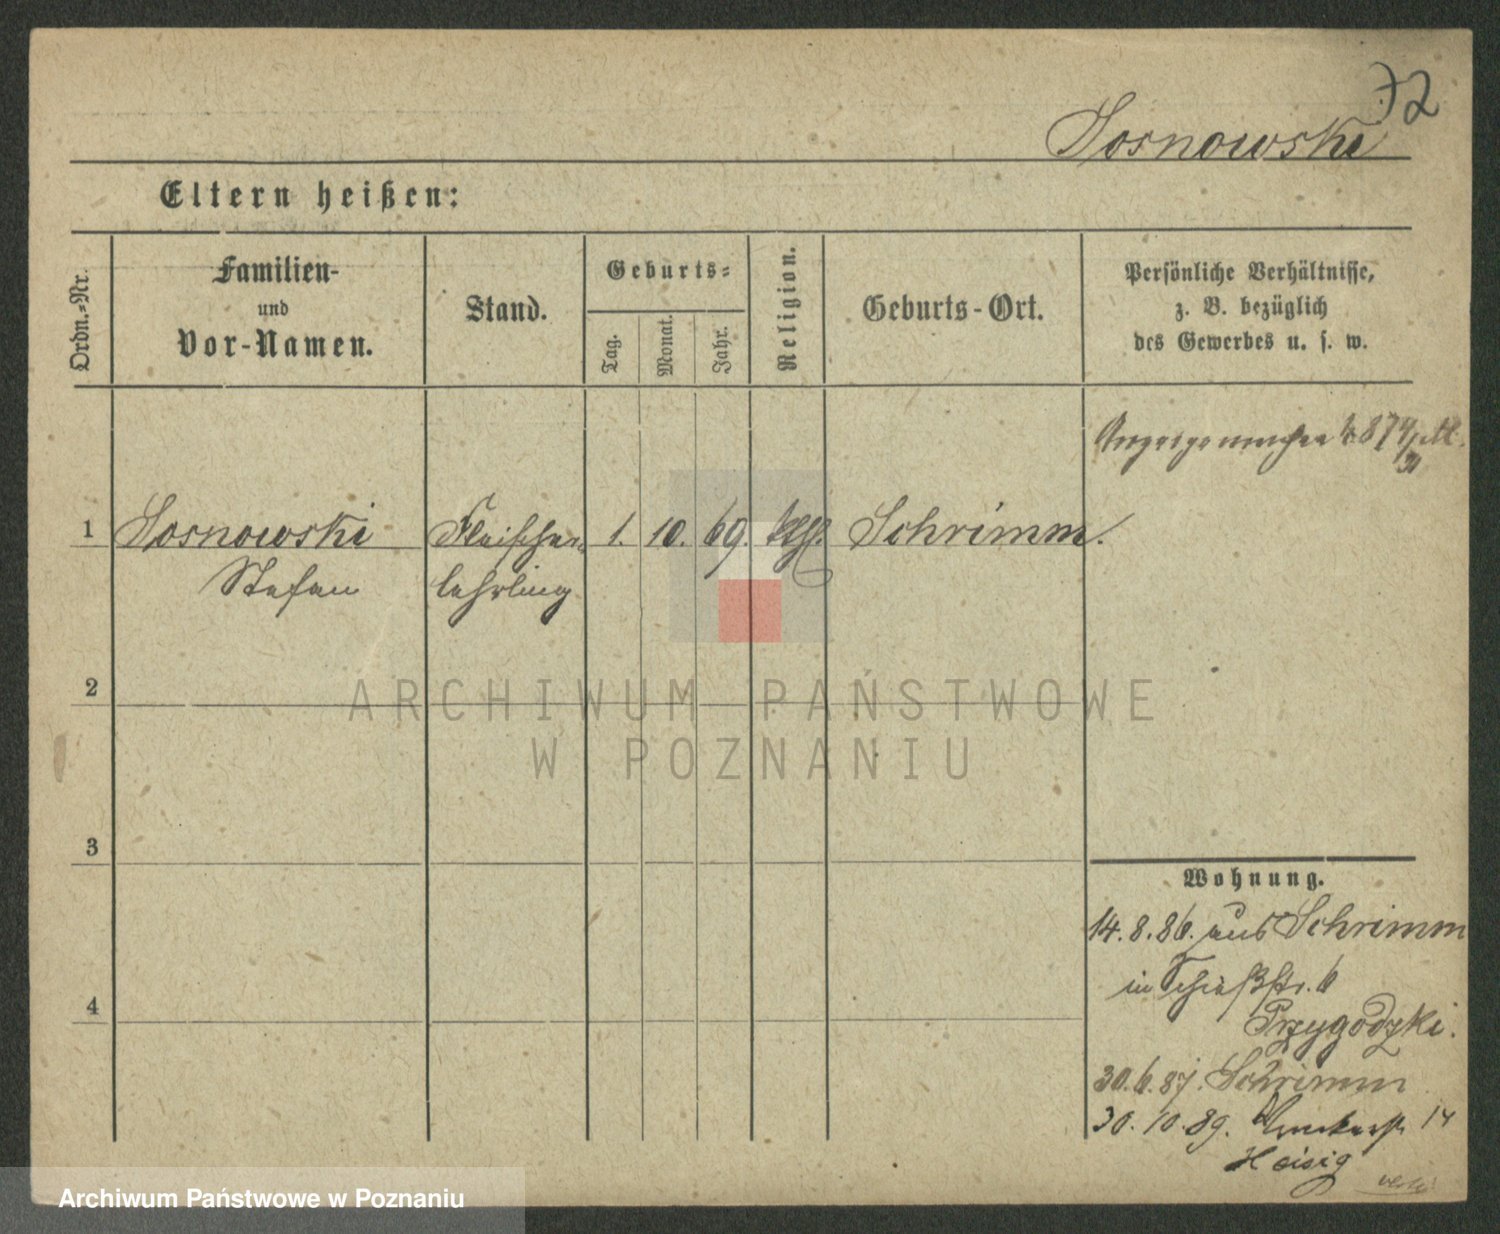 72
Sosnowski
Eltern heißen:
Ordn.-Nr.
Familien-
und
Vor-Namen.
Stand.
Geburts-
Tag.
Monat.
Jahr.
Religion.
Geburts-Ort.
Persönliche Verhältnisse,
z. B. bezüglich
des Gewerbes u. s. w.
1 Sosnowski Fleischer 1. 10. 69. kth. Schrimm.
Stefan lehrling
2
3
4
Wohnung.
14. 8. 86. aus Schrimm
in Schießstr. 6
Przygodzki.
30. 6. 87. Schrimm
30. 10. 89. 14
Heisig
ARCHIWUM PAŃSTWOWE
W POZNANIU
Archiwum Państwowe w Poznaniu